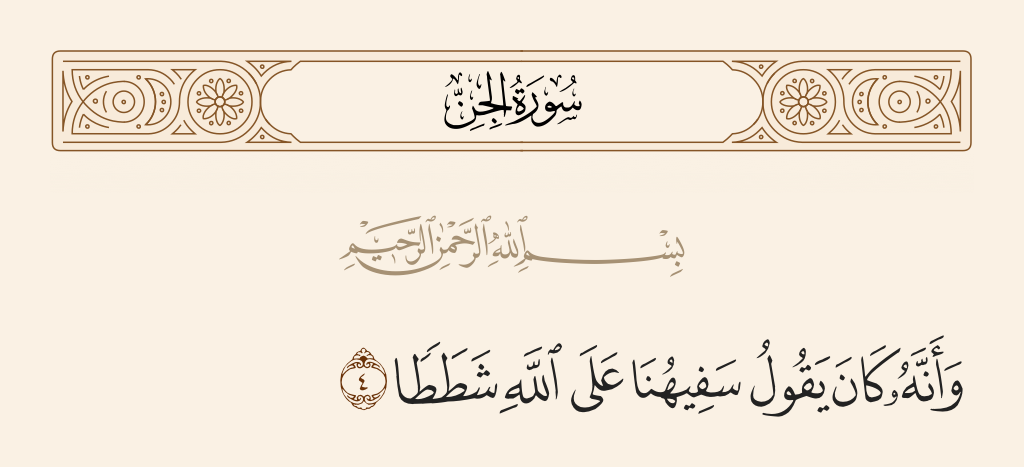 سُورَةُ الجِنِّ
بِسْمِ ٱللَّهِ ٱلرَّحْمَٰنِ ٱلرَّحِيمِ
وَأَنَّهُۥ كَانَ يَقُولُ سَفِيهُنَا عَلَى ٱللَّهِ شَطَطًا ٤